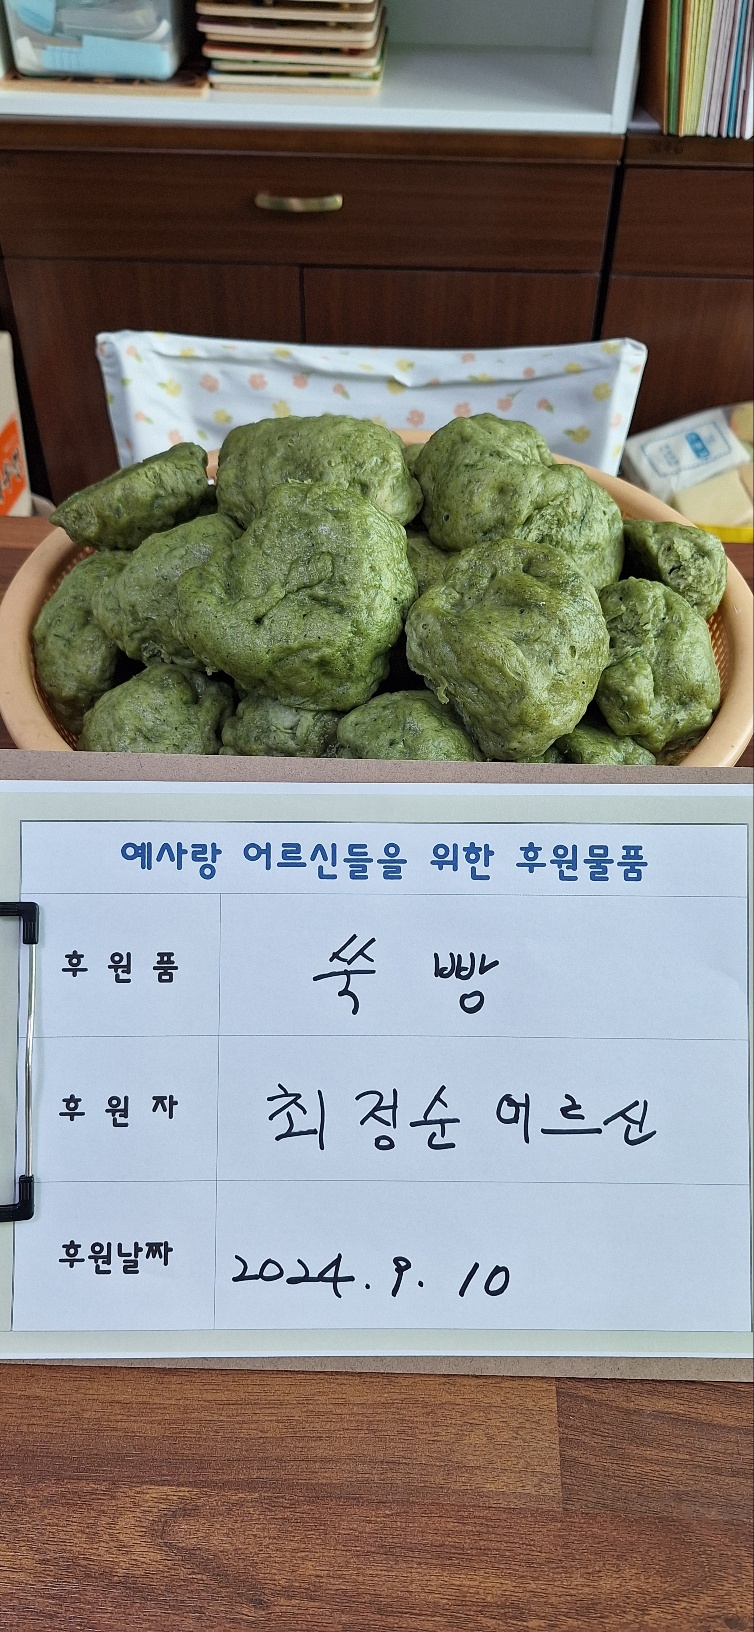 예사랑 어르신들을 위한 후원물품
후 원 품 쑥 빵
후 원 자 최정순 어르신
후원날짜 2024. 9. 10